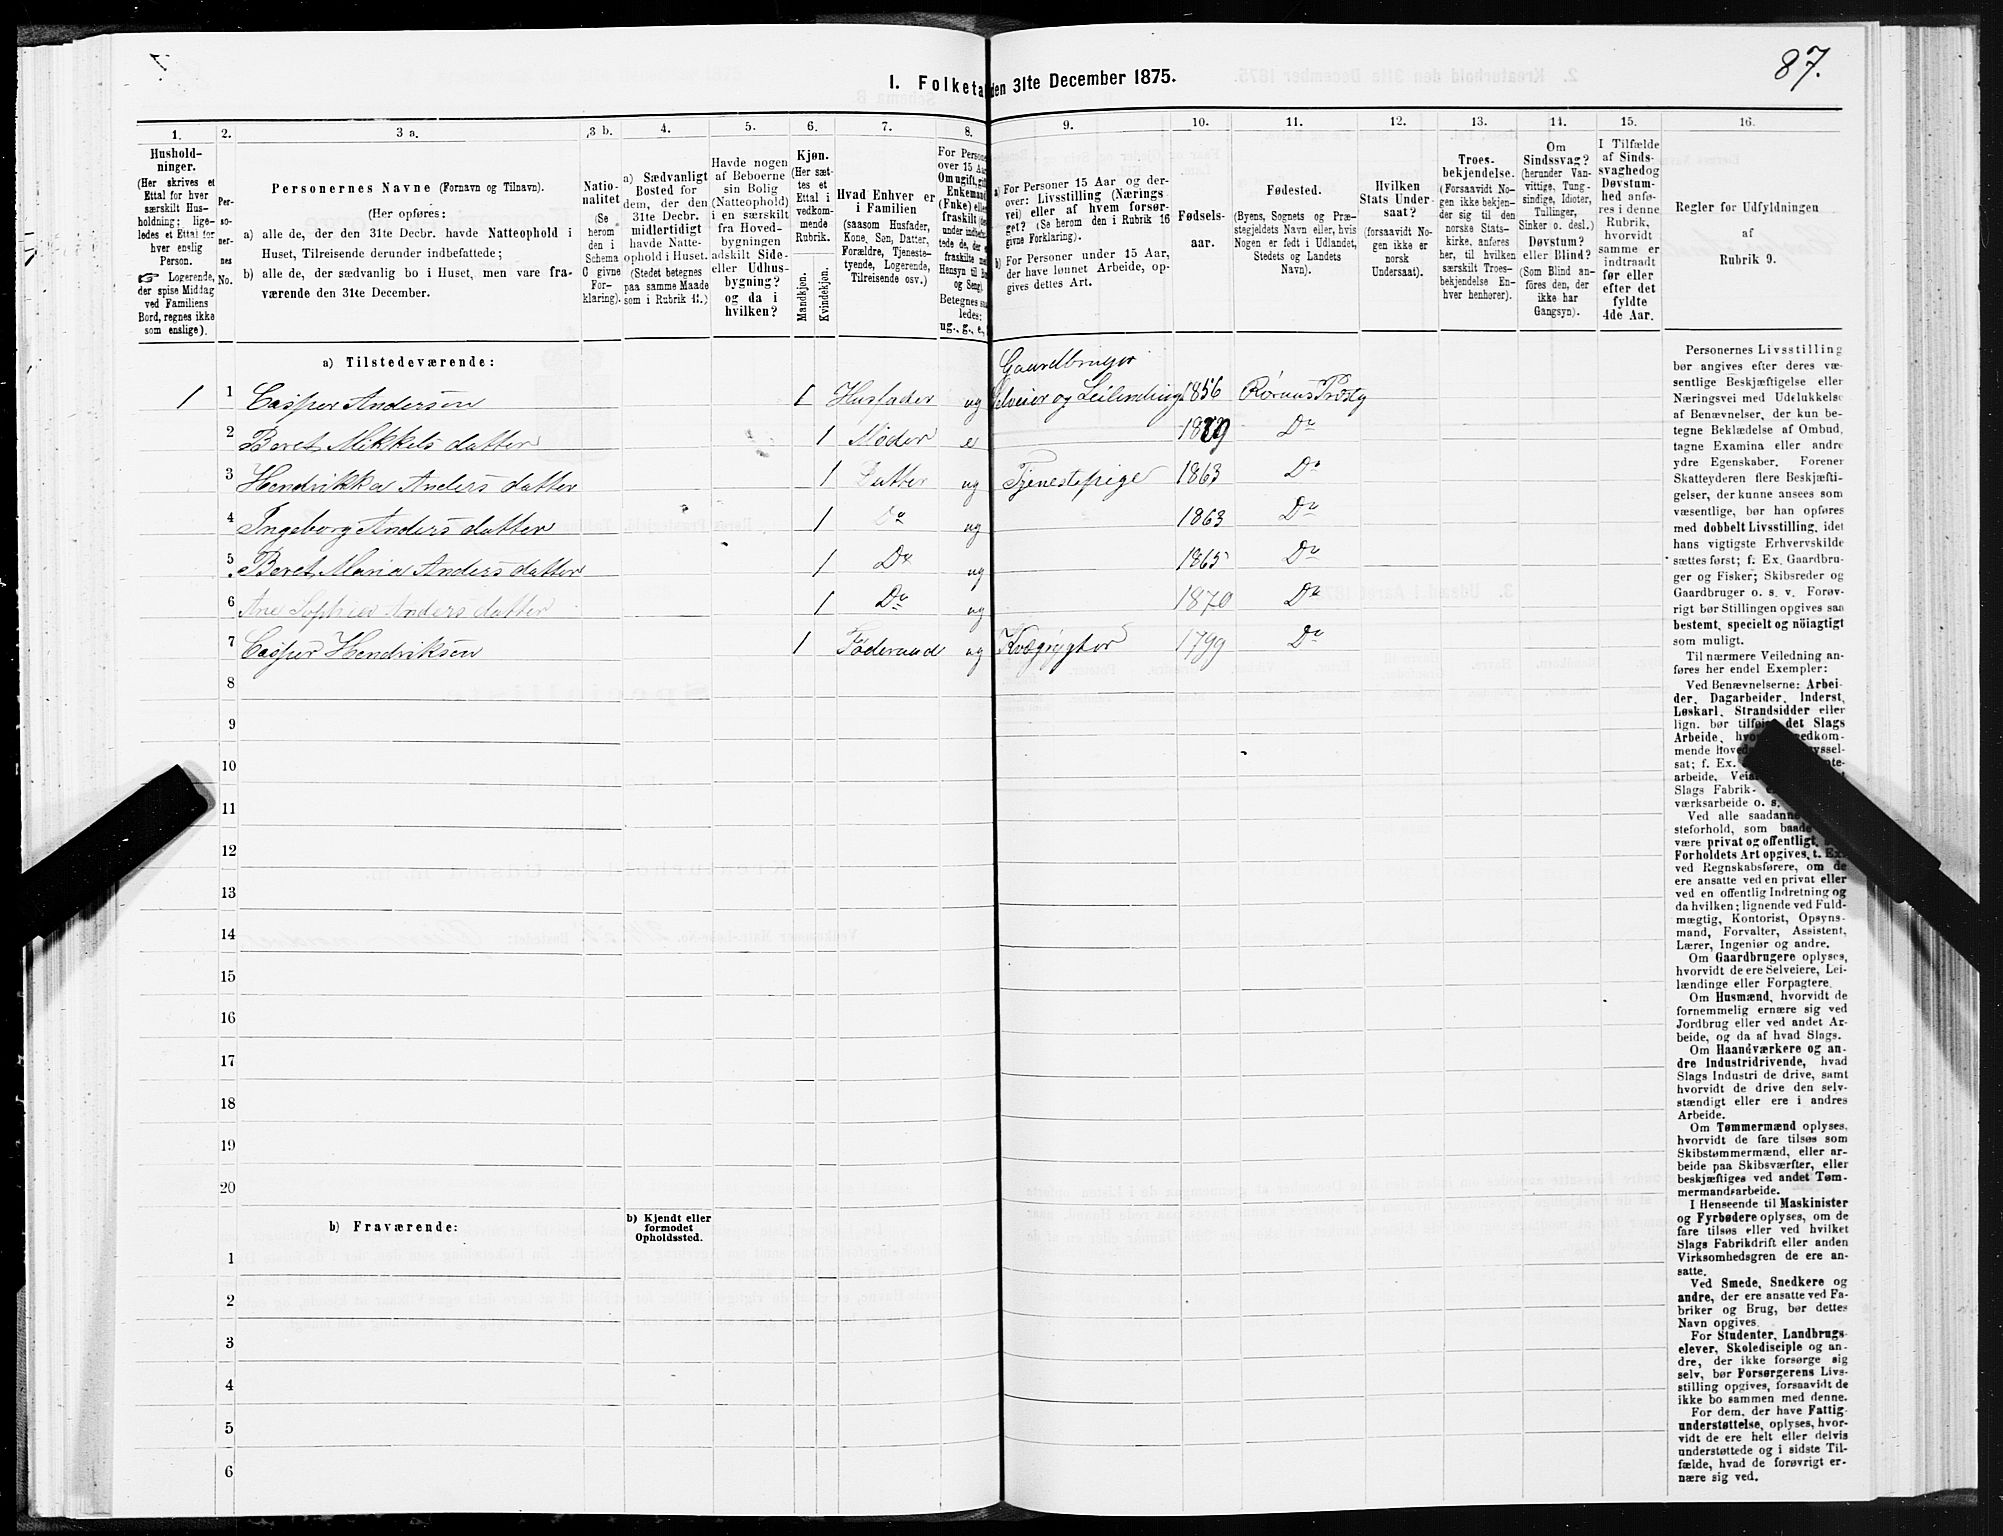 87.
I. Folketal den 31te December 1875.
1.
2.
3 a.
3 b.
4.
5.
6.
7.
8.
9.
10.
11.
12.
13.
14.
15.
16.
Hushold-
ninger.
(Her skrives et
Ettal for hver
særskilt Hus-
holdning; lige-
ledes et Ettal for
hver enslig
Person.
☞ Logerende,
der spise Middag
ved Familiens
Bord, regnes ikke
som enslige).
Per-
so-
ner-
nes
No.
Personernes Navne (Fornavn og Tilnavn).
(Her opføres:
a) alle de, der den 31te Decbr. havde Natteophold i
Huset, Tilreisende derunder indbefattede;
b) alle de, der sædvanlig bo i Huset, men vare fra-
værende den 31te December.
Natio-
nalitet
(Se
herom
den i
Schema
C givne
For-
klaring).
a) Sædvanligt
Bosted for
dem, der den
31te Decbr.
midlertidigt
havde Natte-
ophold i Huset.
(Stedet betegnes
paa samme Maade
som i Rubrik 11.)
Havde nogen
af Beboerne
sin Bolig
(Natteophold)
i en særskilt
fra Hoved-
bygningen
adskilt Side-
eller Udhus-
bygning?
og da i
hvilken?
Kjøn.
(Her sæt-
tes et
Ettal i
vedkom-
mende
Rubrik.
Mandkjøn.
Kvindekjøn.
Hvad Enhver er
i Familien
(saasom Husfader,
Kone, Søn, Datter,
Forældre, Tjeneste-
tyende, Logerende,
Tilreisende osv.)
For Persone
over 15 Aar
Om ugift, gift
Enkemand
(Enke) eller
fraskilt
Hensyn til Bo
og Seng).
Betegnes saa
ledes:
ug., g., e.,
a) For Personer 15 Aar og der-
over: Livsstilling (Nærings-
vei) eller af hvem forsør-
get? (Se herom den i Rubrik 16
givne Forklaring).
b) For Personer under 15 Aar,
der have lønnet Arbeide, op-
gives dettes Art.
Fødsels-
aar.
Fødested.
(Byens, Sognets og Præ-
stegjeldets Navn eller, hvis
Nogen er født i Udlandet,
Stedets og Landets
Navn).
Hvilken
Stats Under-
saat?
(forsaavidt No-
gen ikke er
norsk
Undersaat).
Troes-
bekjendelse.
(Forsaavidt No-
gen ikke bekjen-
der sig til den
norske Stats-
kirke, anføres
her, til hvilken
særskilt Troes-
bekjendelse En-
hver henhører).
Om
Sindssvag?
(herunder Van-
vittige, Tung-
sindige, Idioter,
Tullinger,
Sinker o. desl.)
Døvstum?
eller Blind?
(Som Blind an-
føres den, der
ikke har
Gangsyn).
I Tilfælde
af Sinds-
svaghed og
Døvstum-
hed anfø-
res i denne
Rubrik,
hvorvidt
samme er
indtraadt
før eller
efter det
fyldte
4de Aar.
Regler for Udfyldningen
af
Rubrik 9.
a) Tilstedeværende:
Gaardbruger
1 1 Casper Andersen 1 Husfader ug Selveier og Leilending 1856 Røraas Præstg
2 Beret Mikkelsdatter 1 Moder e Do
3 Hendrikka Andersdatter 1 Datter ug Tjenestepige 1863 Do
4 Ingeborg Andersdatter 1 Do ug 1863 Do
5 Beret Maria Andersdatter 1 Do ug 1865 Do
6 Ane Sophia Andersdatter 1 Do ug 1870 Do
7 Casper Hendriksen 1 Føderaad ug Kvægrygter 1799 Do
8
9
10
11
12
13
14
15
16
17
18
19
20
b) Fraværende:
b) Kjendt eller
formodet
Opholdssted.
1
2
3
4
5
6
Personernes Livsstilling
bør angives efter deres væ-
sentlige Beskjæftigelse eller
Næringsvei med Udelukkelse
af Benævnelser, der kun be-
tegne Beklædelse af Ombud,
tagne Examina eller andre
ydre Egenskaber. Forener
Skatteyderen flere Beskjæfti-
gelser, der kunne ansees som
væsentlige, bør han opføres
med dobbelt Livsstilling, idet
hans vigtigste Erhvervskilde
sættes først; f. Ex. Gaardbru-
ger og Fisker; Skibsreder og
Gaardbruger o. s. v. Forøv-
rigt bør Stillingen opgives saa
bestemt, specielt og nöiagtigt
som muligt.
Til nærmere Veiledning an-
føres her endel Exempler:
Ved Benævnelserne: Arbei-
der, Dagarbeider, Inderst,
Løskarl, Strandsidder eller
lign. bør tilføies det Slags
Arbeide,
mende
sat; f. Ex.
arbeide,
Slags Fabrik-
værksarbeide o. s.
Ved alle saadanne
steforhold, som baade
være privat og offentligt,
Forholdets Art opgives, t. Ex.
ved Regnskabsførere, om de
ere ansatte ved en privat eller
ved en offentlig Indretning og
da hvilken; lignende ved Fuld-
mægtig, Kontorist, Opsyns-
mand, Forvalter, Assistent,
Lærer, Ingeniør og andre.
Om Gaardbrugere oplyses,
hvorvidt de ere Selveiere, Lei-
lændinge eller Forpagtere.
Om Husmænd, hvorvidt de
fornemmelig ernære sig ved
Jordbrug eller ved andet Ar-
beide, og da af hvad Slags.
Om Haandværkere og an-
dre Industridrivende, hvad
Slags Industri de drive, samt
hvorvidt de drive den selv-
stændigt eller ere i andres
Arbeide.
Om Tømmermænd oplyses,
hvorvidt de fare tilsøs som
Skibstømmermænd, eller ar-
beide paa Skibsværfter, eller
beskjæftiges ved andet Tøm-
mermandsarbeide.
I Henseende til Maskinister
og Fyrbødere oplyses, om de
fare tilsøs eller ved hvilket
Slags Fabrikdrift eller anden
Virksomhedsgren de ere an-
satte.
Ved Smede, Snedkere og
andre, der ere ansatte ved Fa-
briker og Brug, bør dettes
Navn opgives.
For Studenter, Landbrugs-
elever, Skoledisciple og an-
dre, der ikke forsørge sig
selv, bør Forsørgerens Livs-
stilling opgives, forsaavidt de
ikke bo sammen med denne.
For dem, der have Fattig-
understøttelse, oplyses, hvor-
vidt de ere helt eller delvis
understøttede og i sidste Til-
fælde, hvad de forøvrigt er-
nære sig ved.